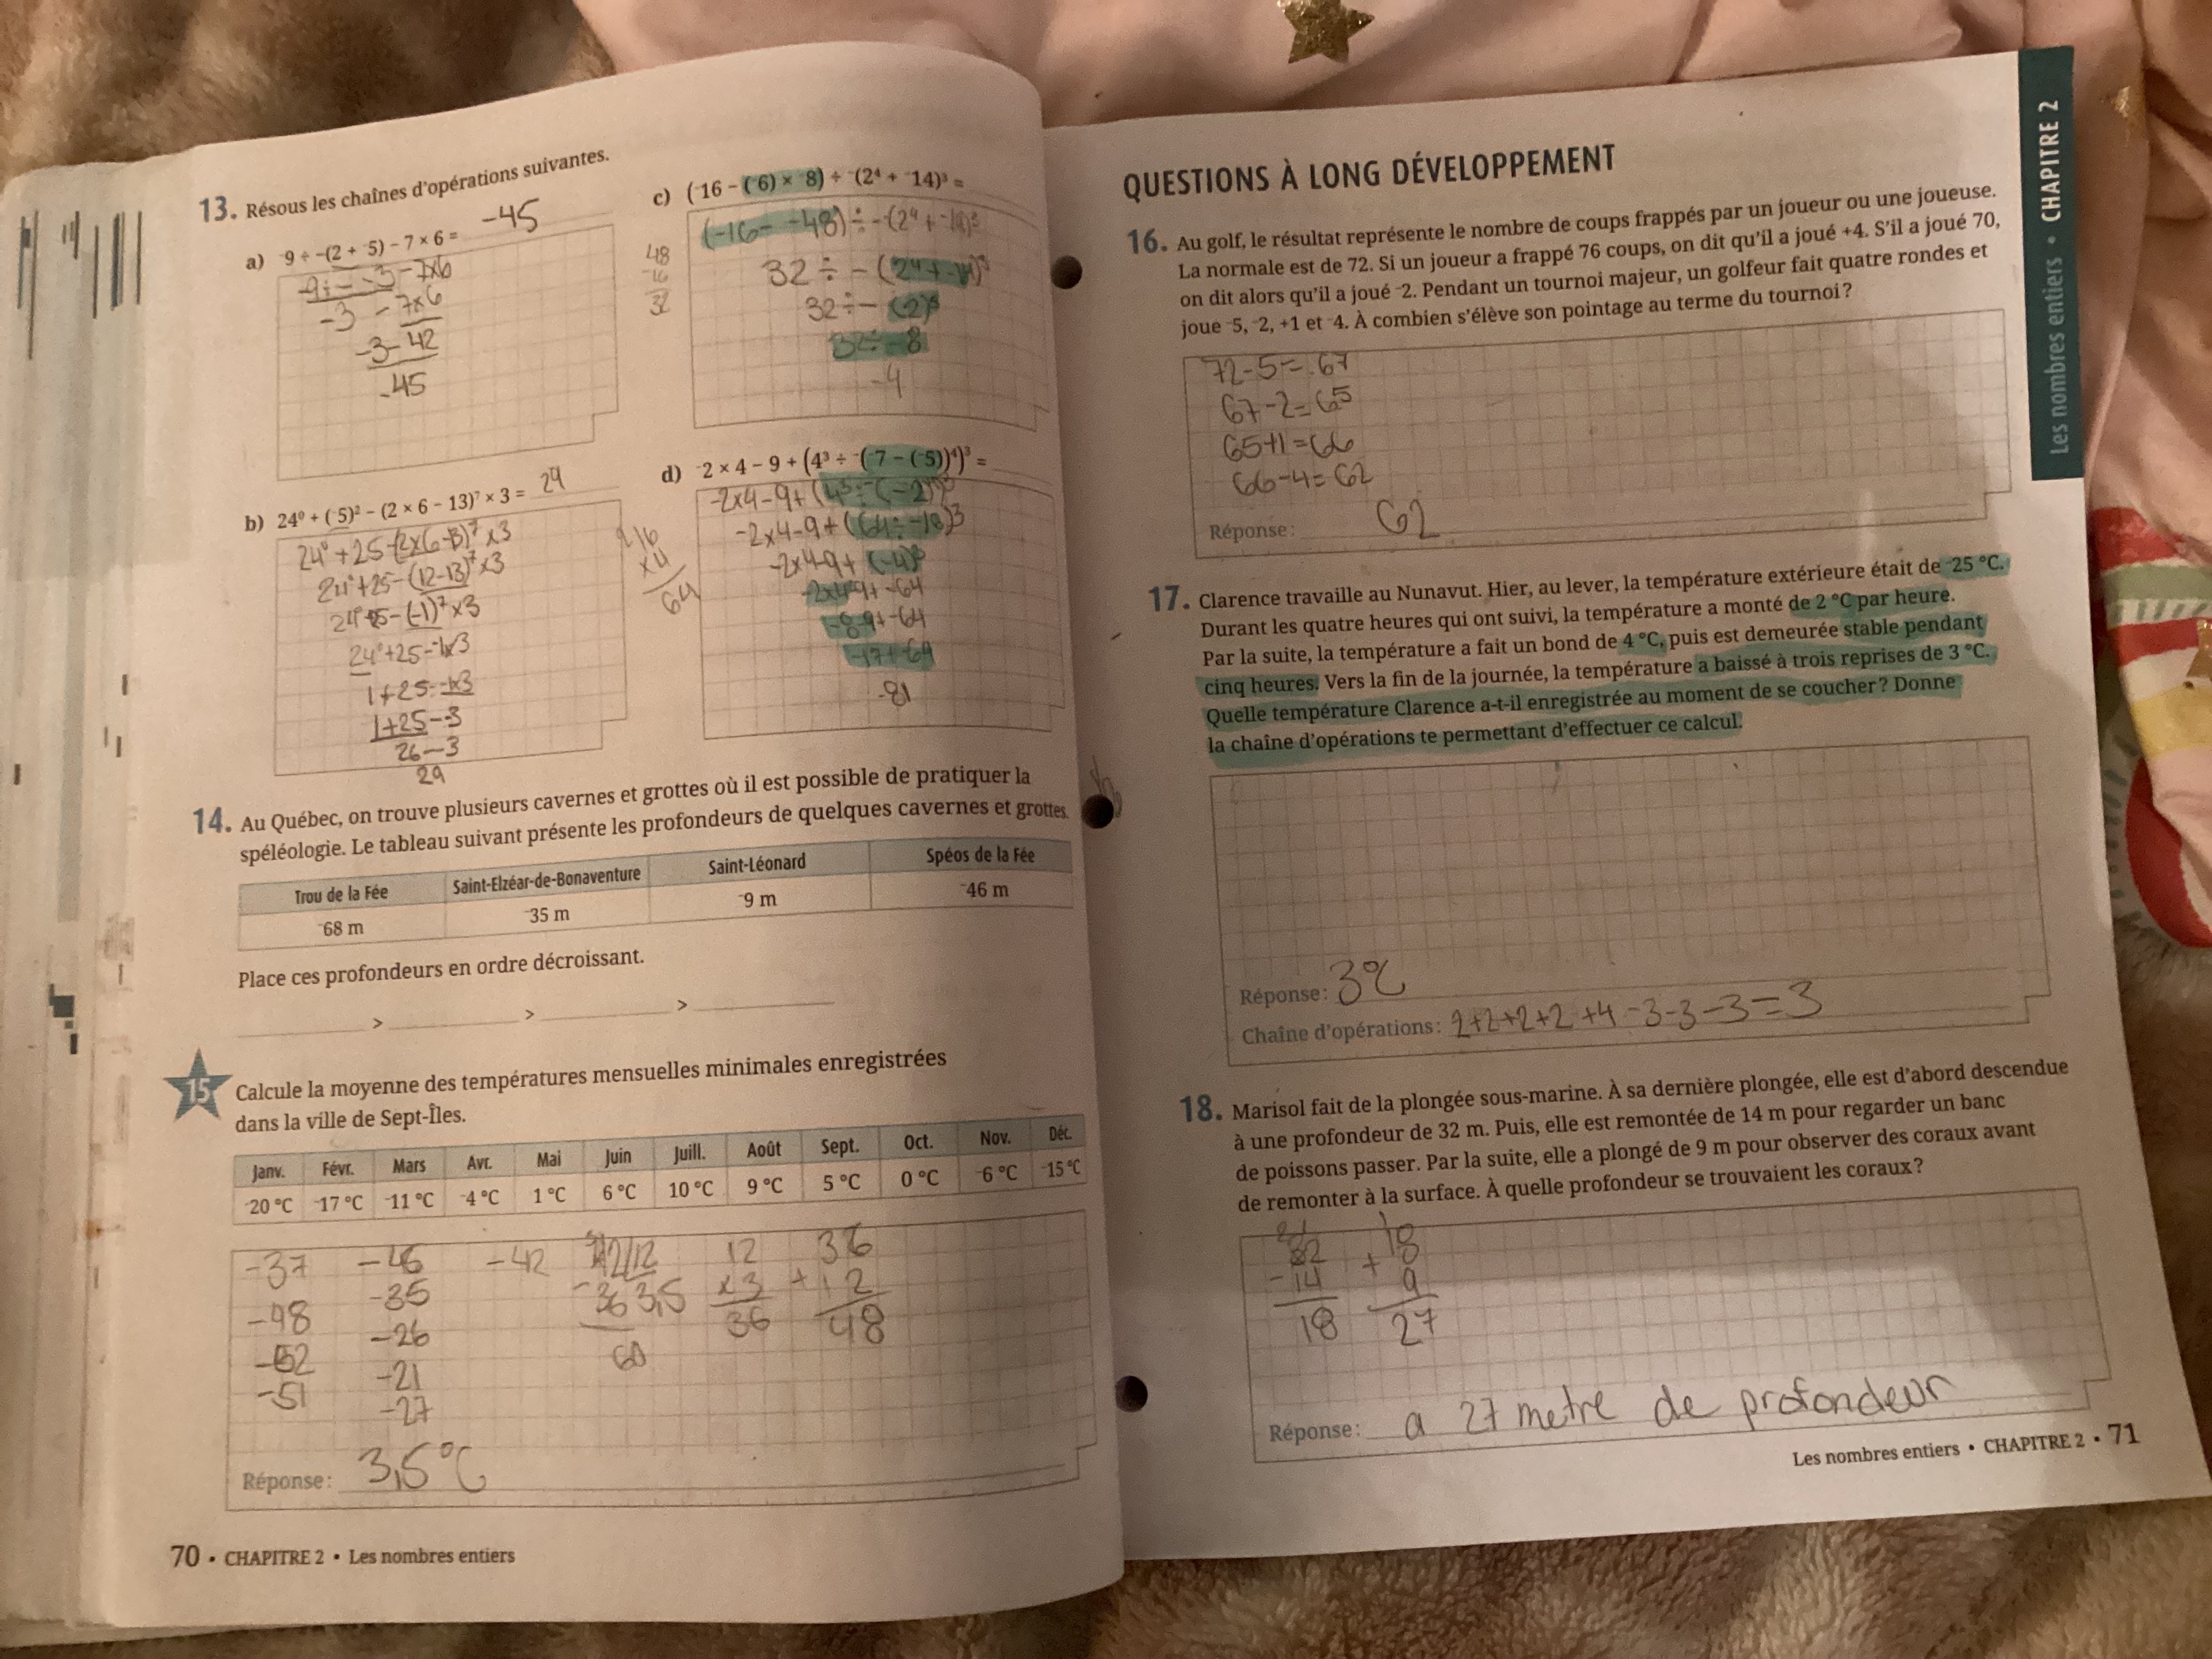 13. Résous les chaînes d'opérations suivantes.
a) ⁻9 ÷ ⁻(2 + ⁻5) − 7 × 6 = -45
-9÷--3-7x6
-3 - 7x6
-3-42
-45
b) 24⁰ + (⁻5)² − (2 × 6 − 13)⁷ × 3 = 29
24⁰+25-(2x6-13)⁷x3
24⁰+25-(12-13)⁷x3
24⁰+25-(-1)⁷x3
24⁰+25--1x3
1+25--1x3
1+25--3
26--3
29
c) (⁻16 − (⁻6) × ⁻8) ÷ ⁻(2⁴ + ⁻14)³ =
48
-16
32
(-16--48)÷-(2⁴+-14)³
32÷-(2⁴+-14)³
32÷-(2)³
32÷-8
-4
d) ⁻2 × 4 − 9 + (4³ ÷ ⁻(⁻7 − (⁻5))⁴)³ =
216
x4
64
-2x4-9+(4³÷-(-2)⁴)³
-2x4-9+(64÷-18)³
-2x4-9+(-4)³
-2x4-9+-64
-8-9+-64
-17+-64
-81
14. Au Québec, on trouve plusieurs cavernes et grottes où il est possible de pratiquer la
spéléologie. Le tableau suivant présente les profondeurs de quelques cavernes et grottes.
Trou de la Fée Saint-Elzéar-de-Bonaventure Saint-Léonard Spéos de la Fée
⁻68 m ⁻35 m ⁻9 m ⁻46 m
Place ces profondeurs en ordre décroissant.
> > >
15 Calcule la moyenne des températures mensuelles minimales enregistrées
dans la ville de Sept-Îles.
Janv. Févr. Mars Avr. Mai Juin Juill. Août Sept. Oct. Nov. Déc.
⁻20 °C ⁻17 °C ⁻11 °C ⁻4 °C 1 °C 6 °C 10 °C 9 °C 5 °C 0 °C ⁻6 °C ⁻15 °C
-37 -46 -42 12 36
-98 -35 -36 3,5 x3 +12
-52 -26 36 48
-51 -21 60
-27
Réponse: 3,5°C
70 • CHAPITRE 2 • Les nombres entiers
QUESTIONS À LONG DÉVELOPPEMENT
16. Au golf, le résultat représente le nombre de coups frappés par un joueur ou une joueuse.
La normale est de 72. Si un joueur a frappé 76 coups, on dit qu'il a joué +4. S'il a joué 70,
on dit alors qu'il a joué ⁻2. Pendant un tournoi majeur, un golfeur fait quatre rondes et
joue ⁻5, ⁻2, +1 et ⁻4. À combien s'élève son pointage au terme du tournoi?
72-5=67
67-2=65
65+1=66
66-4=62
Réponse: 62
17. Clarence travaille au Nunavut. Hier, au lever, la température extérieure était de ⁻25 °C.
Durant les quatre heures qui ont suivi, la température a monté de 2 °C par heure.
Par la suite, la température a fait un bond de 4 °C, puis est demeurée stable pendant
cinq heures. Vers la fin de la journée, la température a baissé à trois reprises de 3 °C.
Quelle température Clarence a-t-il enregistrée au moment de se coucher? Donne
la chaîne d'opérations te permettant d'effectuer ce calcul.
Réponse: 3°C
Chaîne d'opérations: 2+2+2+2+4-3-3-3=3
18. Marisol fait de la plongée sous-marine. À sa dernière plongée, elle est d'abord descendue
à une profondeur de 32 m. Puis, elle est remontée de 14 m pour regarder un banc
de poissons passer. Par la suite, elle a plongé de 9 m pour observer des coraux avant
de remonter à la surface. À quelle profondeur se trouvaient les coraux?
32 18
-14 + 9
18 27
Réponse: a 27 metre de profondeur
Les nombres entiers • CHAPITRE 2 • 71
Les nombres entiers • CHAPITRE 2